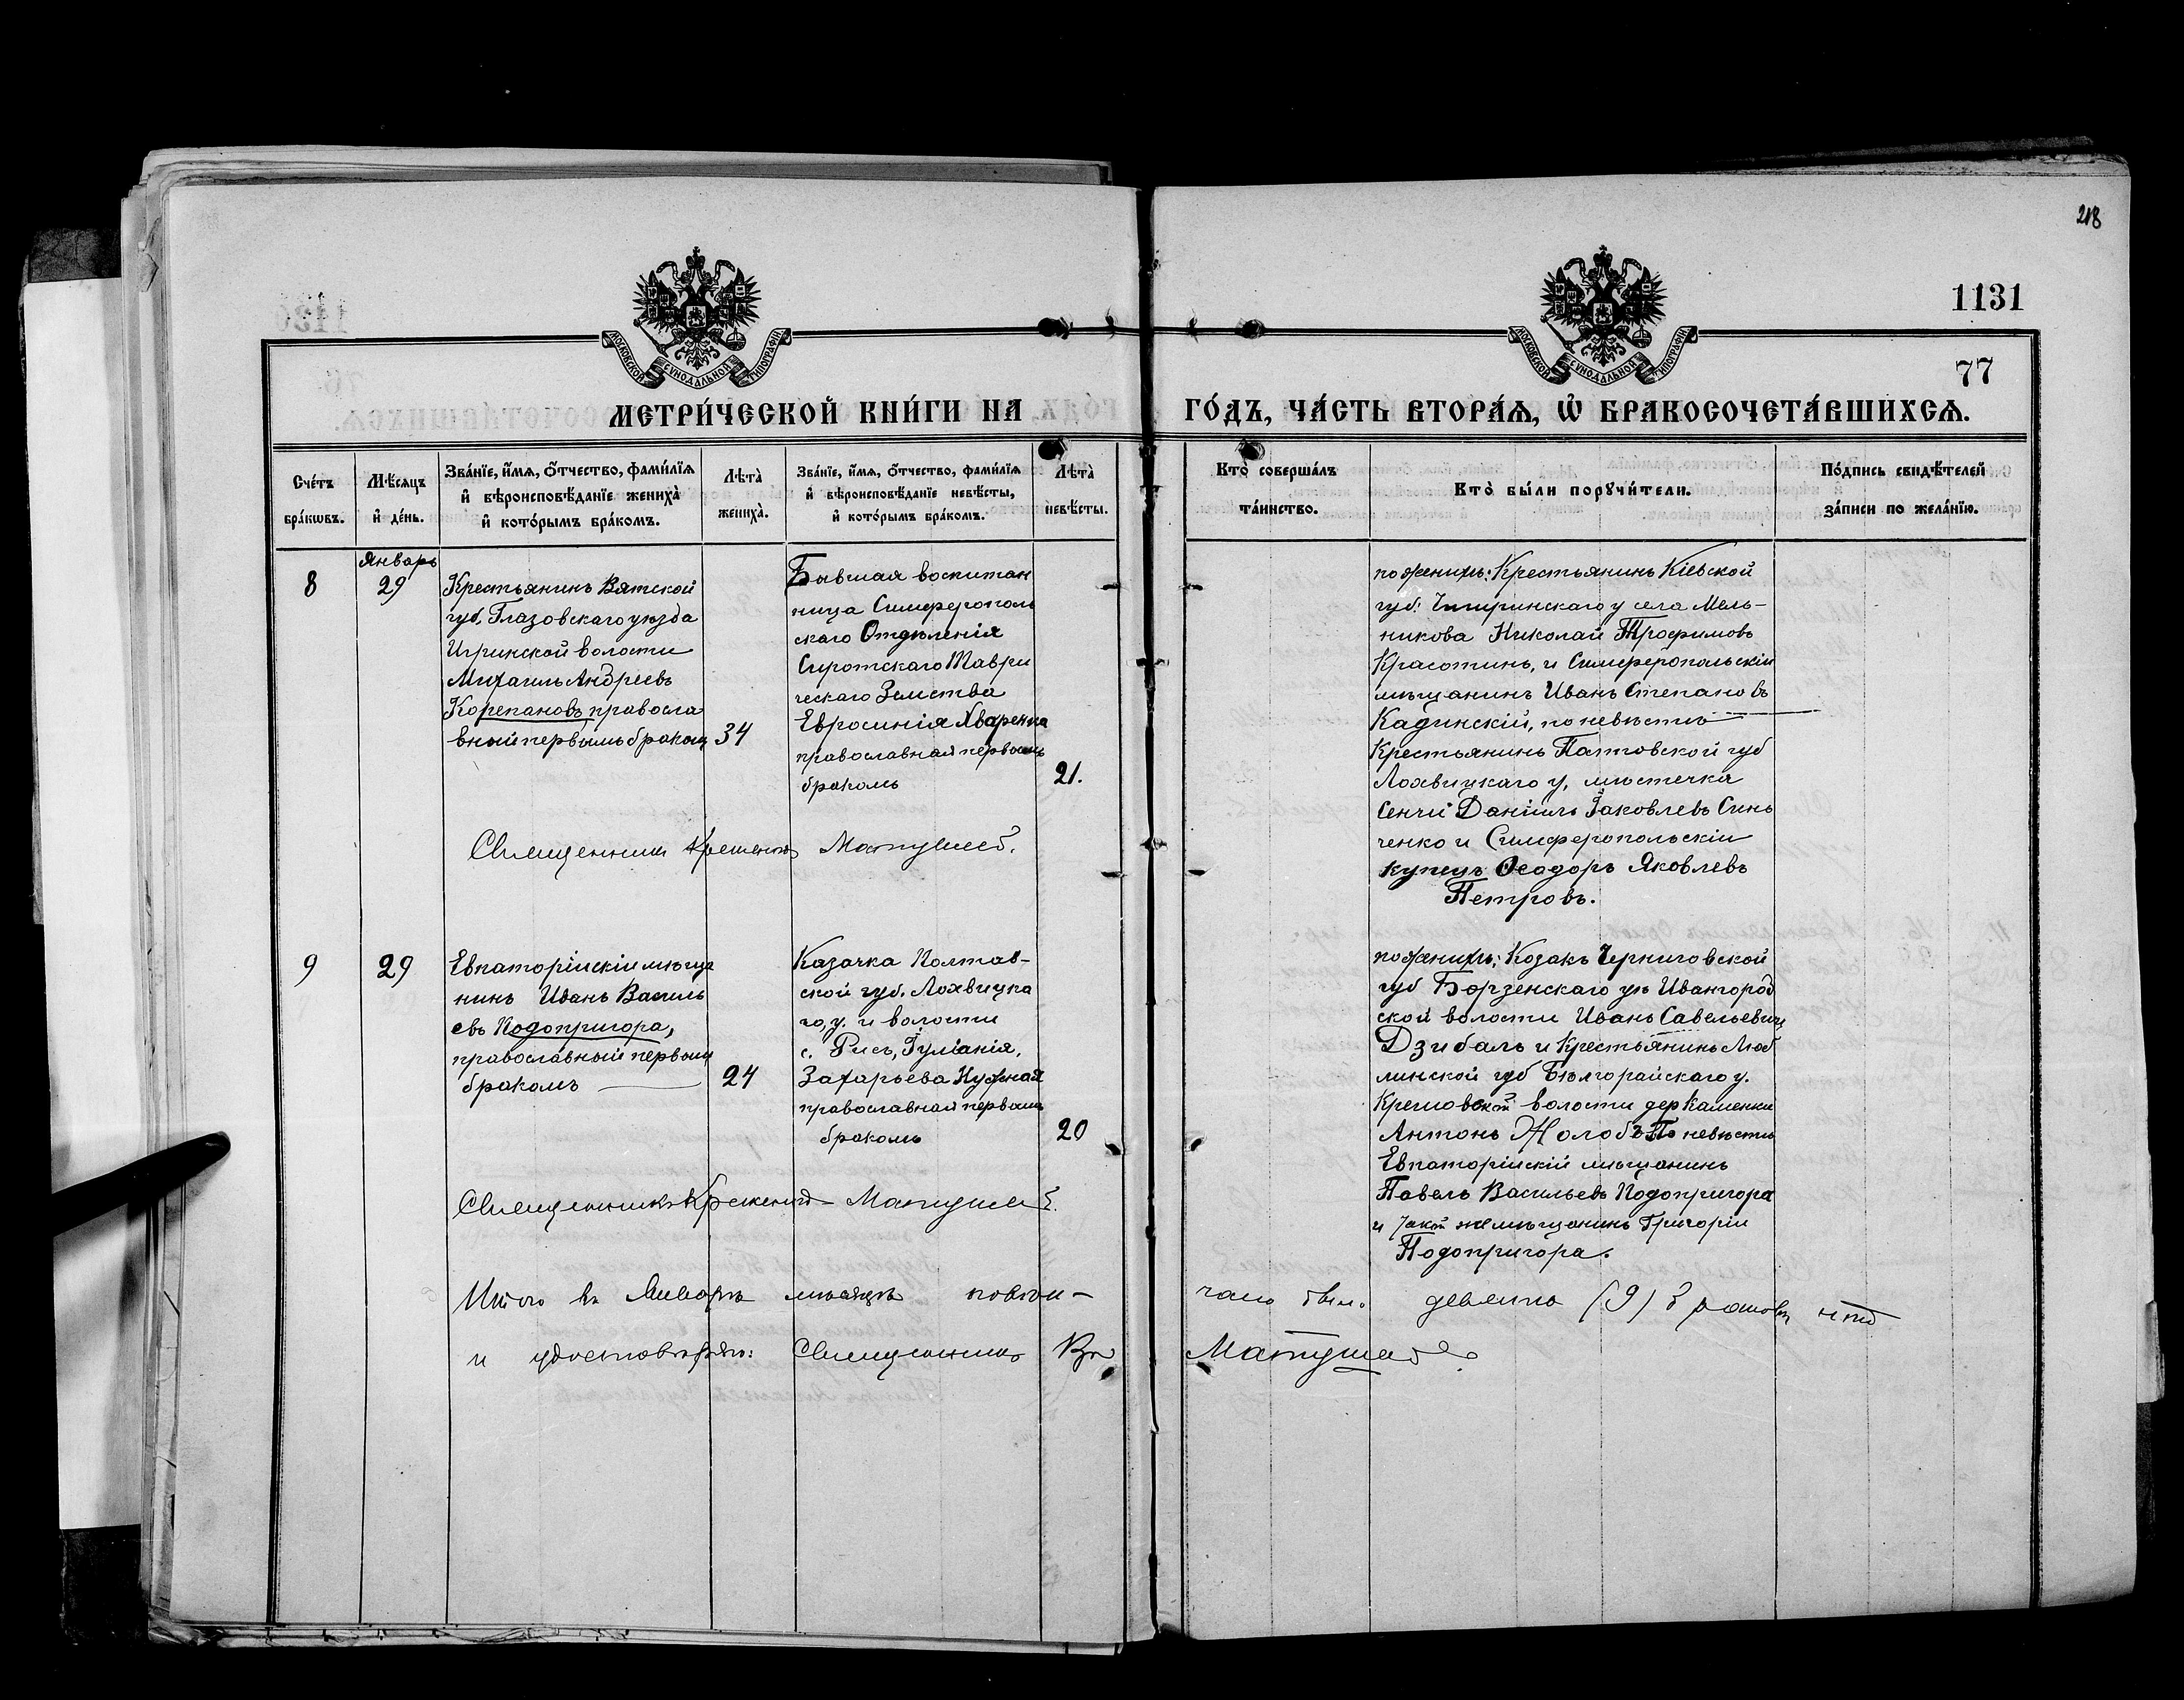 218
1131
77
МОСКОВСКОЙ СУНОДАЛЬНОЙ ТИПОГРАФІИ
МОСКОВСКОЙ СУНОДАЛЬНОЙ ТИПОГРАФІИ
МЕТРИ́ЧЕСКОЙ КНИ́ГИ НА
ГО́ДЪ, ЧА́СТЬ ВТОРА́Ѧ, Ѡ҆ БРАКОСОЧЕТА́ВШИХСѦ.
Сче́тъ
бра́кѡвъ.
Мѣ́сѧцъ
и҆ де́нь.
Зва́нїе, и҆́мѧ, ѻ҆́тчество, фами́лїѧ
и҆ вѣроисповѣ́данїе жениха̀
и҆ кото́рымъ бра́комъ.
Лѣта̀
жениха̀.
Зва́нїе, и҆́мѧ, ѻ҆́тчество, фами́лїѧ
и҆ вѣроисповѣ́данїе невѣ́сты,
и҆ кото́рымъ бра́комъ.
Лѣта̀
невѣ́сты.
Кто̀ соверша́лъ
та́инство.
Кто̀ бы́ли порꙋчи́тели.
По́дпись свидѣ́телей
за́писи по жела́нїю.
8
Январь
29
Крестьянинъ Вятской
губ. Глазовскаго уѣзда
Игринской волости
Михаилъ Андреевъ
Корепановъ, правосла
вный первымъ бракомъ
34
Бывшая воспитан
ница Симферополь
скаго Отдѣленія
Сиротскаго Таври
ческаго Земства
Евросинія
православная первымъ
бракомъ
21.
по женихѣ: Крестьянинъ Кіевской
губ: Чигиринскаго у села Мель-
никова Николай Трофимовъ
Красотинъ, и Симферопольскій
мѣщанинъ Иванъ Степановъ
Кадинскій, по невѣстѣ
Крестьянинъ Полтовской губ
Лохвицкаго у, мѣстечка
Сенчи Даніилъ Іаковлевъ Синь
ченко и Симферопольскій
купецъ Ѳеодоръ Яковлевъ
Петровъ.
Священникъ Матушев.
9
29
Евпаторійскій мѣща
нинъ Иванъ Василь
евъ Подопригора,
православный первымъ
бракомъ
24
Казачка Полтав-
ской губ. Лохвицка
го, у. и волости
с. Рисъ, Іуліанія,
Захарьева Нужная
православная первымъ
бракомъ
20
по женихѣ: Козакъ Черниговской
губ Борзенскаго уѣ Ивангород
ской волости Иванъ Савельевичъ
Дзибалъ и Крестьянинъ Люб
линской губ Бѣлгорайскаго у.
волости дер Каменки
Антонъ Жолобъ По невѣстѣ
Евпаторійскій мѣщанинъ
Павелъ Васильевъ Подопригора
и мѣщанинъ Григорій
Подопригора.
Священникъ Матушев.
Итого въ Январѣ мѣсяцѣ повѣн-
чано было девять (9) браковъ
и удостовѣряю: Священникъ
Матушевъ